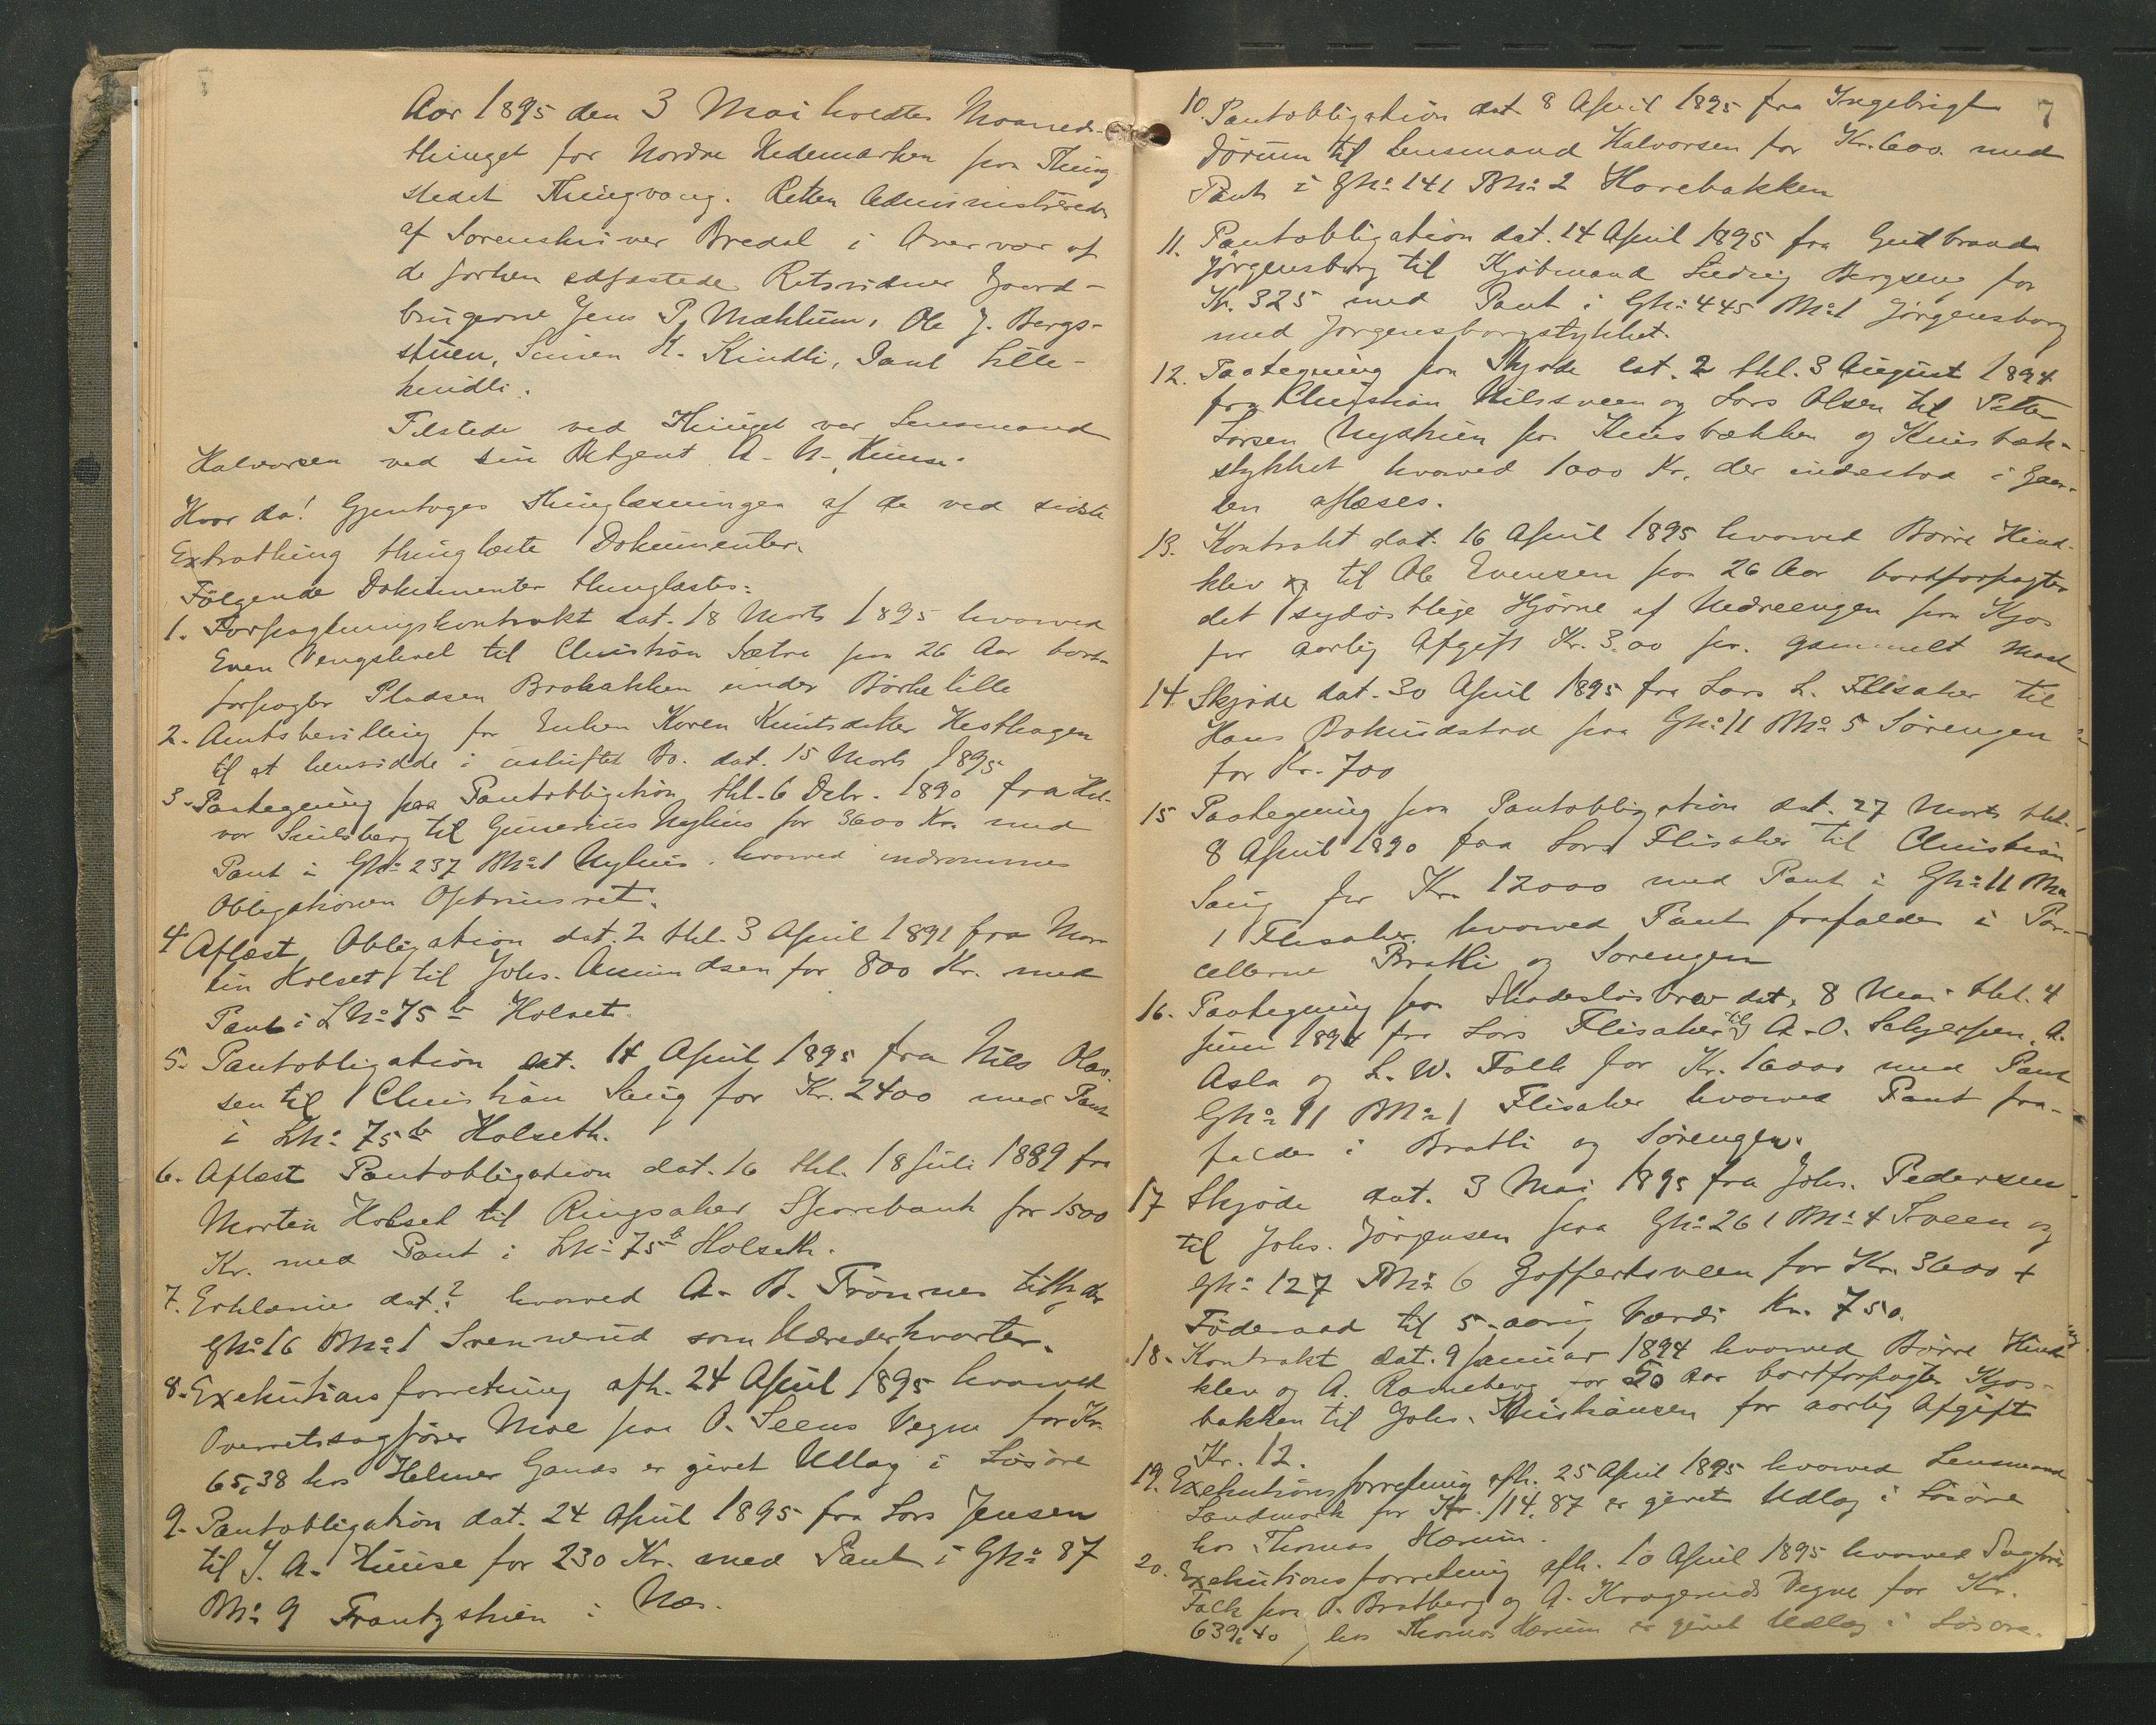 Aar 1895 den 3 Mai holdtes Maaneds-
thinget for Nordre Hedemarken paa Thing
stedet Thingvang. Retten administreredes
af Sorenskriver Bredal i Overvær af
de forhen edfæstede Retsvidner Gaard-
brugerne Jens P. Mæhlum, Ole J. Bergs-
stuen, Simen H. Kindli, Paul Lille-
kindli.
Tilstede ved Thinget var Lensmand
Halvorsen ved sin Betjent A. N. Huuse.
Hvor da! Gjentoges Thinglæsningen af de ved sidste
Extrathing thinglæste Dokumenter.
Følgende Dokumenter thinglæstes:
1. Forpagtningskontrakt dat. 18 Marts 1895 hvorved
Even Vengshoel til Christian Sætre paa 26 Aar bort-
forpagter Pladsen Brobakken under Børke lille
2. Amtsbevilling for Enken Karen Knutsdatter Hesthagen
til at hensidde i uskiftet Bo. dat. 15 Marts 1895
3. Paategning paa Pantobligation thl. 6 Debr. 1890 fra Hal-
vor Smedsberg til Gunerius Nyhus for 3600 Kr. med
Pant i Gno 237 Bno 1 Nyhus. hvorved indrømmes
Obligationen Optrinsret.
4 Aflæst Obligation dat. 2 thl. 3 April 1891 fra Mor-
tin Holset til Johs. Amundsen for 800 Kr. med
Pant i LNo 75 b Holset.
5. Pantobligation dat. 14 April 1895 fra Nils Olav-
sen til Christian Saug for Kr. 2400 med Pant
i LNo 75 b Holseth.
6. Aflæst Pantobligation dat. 16 thl. 18 Juli 1889 fra
Morten Holset til Ringsaker Sparebank for 1500
Kr. med Pant i LNo 75 b Holseth.
7. Erklæring dat.? hvorved A. B. Trønnes
GNo 16 BNo 1 Svennerud som
8. Exekutionsforretning afh. 24 April 1895 hvorved
Overretssagfører Moe paa O. Seens Vegne for Kr.
65,38 hos Helmer Ganaas er givet Udlæg i Løsøre
9. Pantobligation dat. 24 April 1895 fra Lars Jensen
til J. A. Huuse for 230 Kr. med Pant i GNo 87
BNo 9 Frantzstuen i Næs.
7
10. Pantobligation dat 8 April 1895 fra Ingebrigt
Jørum til Lensmand Halvorsen for Kr. 600. med
Pant i GNo 141 BNo 2 Harebakken
11. Pantobligation dat. 14 April 1895 fra Gudbrand
Jørgensborg til Kjøbmand Ludvig Bergseng for
Kr. 325 med Pant i GNo 445 BNo 1 Jørgensborg
med Jørgensborgstykket.
12. Paategning paa Skjøde dat. 2 thl. 3 August 1894
fra Christian Nilssveen og Lars Olsen til Petter
Larsen Nystuen paa Kuusbækken og Kuusbæk-
stykket hvorved 1000 Kr. der indestod i Gaar-
den aflæses.
13. Kontrakt dat. 16 April 1895 hvorved Børre Hind-
klev og til Ole Evensen paa 26 Aar bortforpagter
det sydøstlige Hjørne af Nedreengen paa Kjos
for aarlig Afgift Kr. 3,00 pr. gammelt Maal
14. Skjøde dat. 30 April 1895 fra Lars L. Flisaker til
Hans Bakudstad paa GNo 11 BNo 5 Sørengen
for Kr. 700
15 Paategning paa Pantobligation dat. 27 Marts thl.
8 April 1890 fra Lars Flisaker til Christian
Saug for Kr. 12000 med Pant i GNo 11 BNo
1 Flisaker, hvorved Pant frafaldes i Par-
cellerne Bratli og Sørengen
16. Paategning paa Skadesløsbrev dat. 8 Mai thl. 4
Juni 1894 fra Lars Flisaker til A. O. Schjerpen, A.
Asla og L. W. Falk for Kr. 16000 med Pant
GNo 11 BNo 1 Flisaker hvorved Pant fra-
faldes i Bratli og Sørengen.
17 Skjøde dat. 3 Mai 1895 fra Johs. Pedersen
til Johs. Jørgensen paa GNo 261 BNo 4 Sveen og
GNo 127 BNo 6 Goffertsveen for Kr. 3600 +
Føderaad til 5-aarig Værdi Kr. 750.
18. Kontrakt dat. 9 Januar 1894 hvorved Børre Hind
klev og A. Rameberg for 50 Aar bortforpagter Kjos-
bakken til Johs. Kristiansen for aarlig Afgift
Kr. 12.
19. Exekutionsforretning afh. 25 April 1895 hvorved Lensmand
Landmark for Kr. 114,87 er givet Udlæg i Løsøre
hos Thomas Hærum.
20. Exekutionsforretning afh. 10 April 1895 hvorved Sagfører
Falk paa O. Bratberg og A. Krageruds Vegne for Kr.
639,40 hos Thomas Hærum er givet Udlæg i Løsøre.